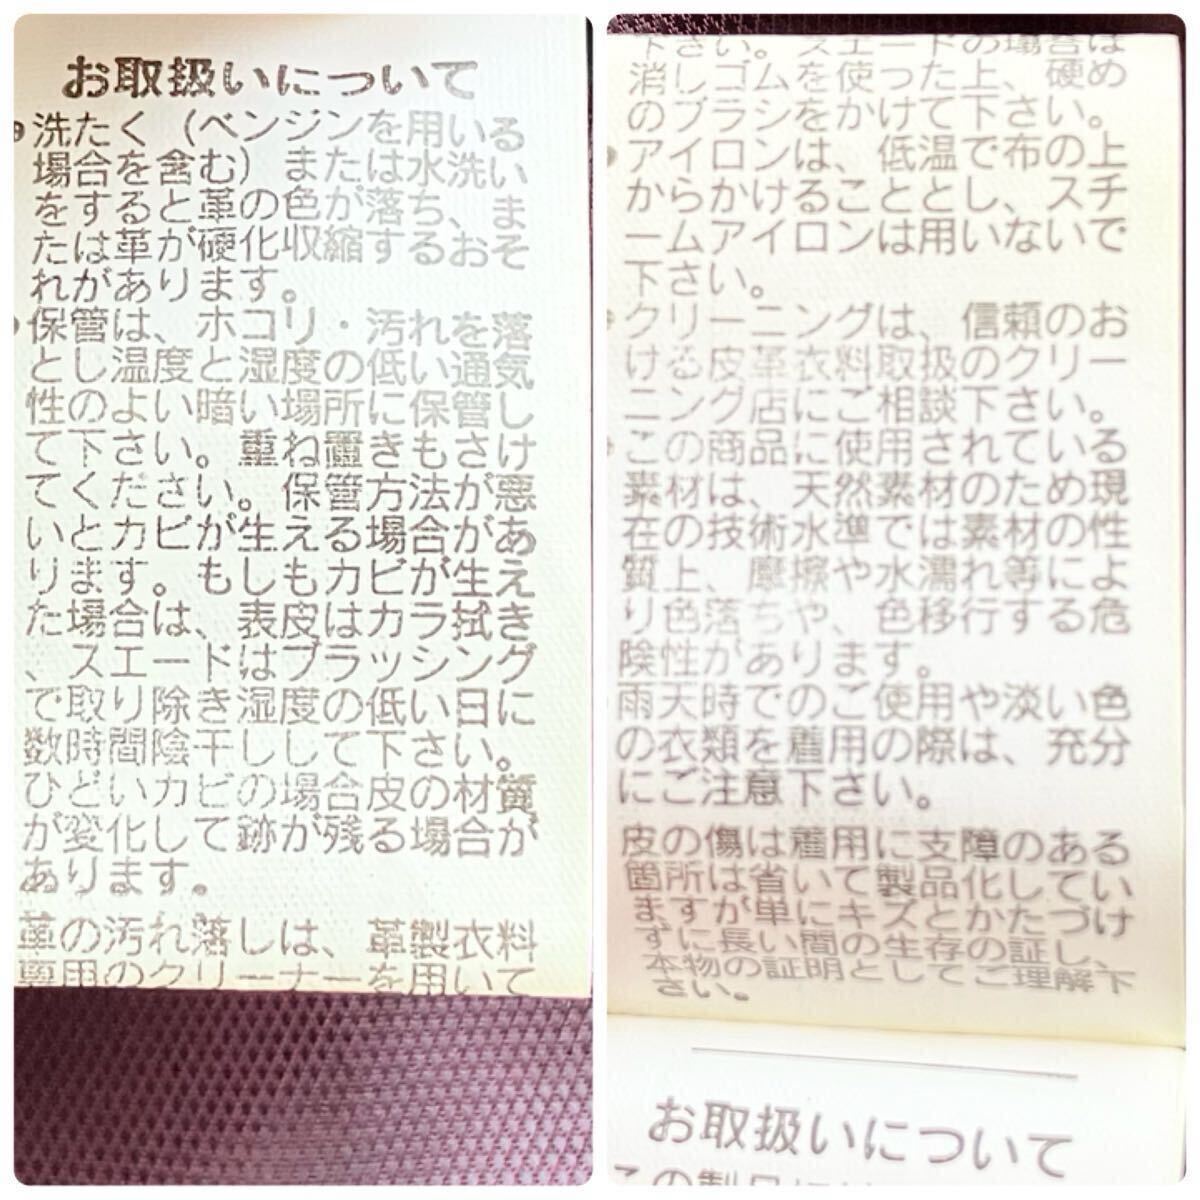 お取扱いについて
洗たく（ベンジンを用いる
場合を含む）または水洗い
をすると革の色が落ち、ま
たは革が硬化収縮するおそ
れがあります。
保管は、ホコリ・汚れを落
とし温度と湿度の低い通気
性のよい暗い場所に保管し
て下さい。重ね置きもさけ
てください。保管方法が悪
いとカビが生える場合があ
ります。もしもカビが生え
た場合は、表皮はカラ拭き
、スエードはブラッシング
で取り除き湿度の低い日に
数時間陰干しして下さい。
ひどいカビの場合皮の材質
が変化して跡が残る場合が
あります。
革の汚れ落しは、革製衣料
専用のクリーナーを用いて
下さい。スエードの場合は
消しゴムを使った上、硬め
のブラシをかけて下さい。
アイロンは、低温で布の上
からかけることとし、スチ
ームアイロンは用いないで
下さい。
クリーニングは、信頼のお
ける皮革衣料取扱のクリー
ニング店にご相談下さい。
この商品に使用されている
素材は、天然素材のため現
在の技術水準では素材の性
質上、摩擦や水濡れ等によ
り色落ちや、色移行する危
険性があります。
雨天時でのご使用や淡い色
の衣類を着用の際は、充分
にご注意下さい。
皮の傷は着用に支障のある
箇所は省いて製品化してい
ますが単にキズとかたづけ
ずに長い間の生存の証し、
本物の証明としてご理解下
さい。
お取扱いについて
この製品は